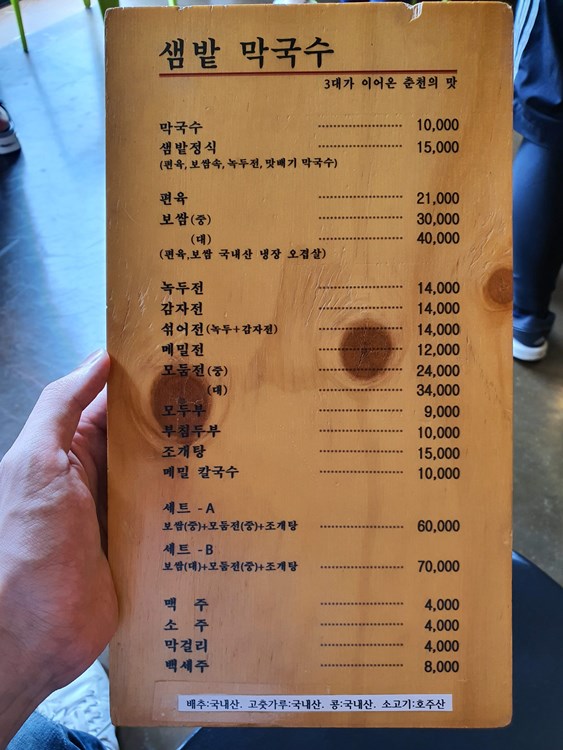 샘밭 막국수
3대가 이어온 춘천의 맛
막국수 10,000
샘밭정식 15,000
(편육,보쌈속,녹두전,맛배기 막국수)
편육 21,000
보쌈(중) 30,000
(대) 40,000
(편육,보쌈 국내산 냉장 오겹살)
녹두전 14,000
감자전 14,000
섞어전(녹두+감자전) 14,000
메밀전 12,000
모둠전(중) 24,000
(대) 34,000
모두부 9,000
부침두부 10,000
조개탕 15,000
메밀 칼국수 10,000
세트 -A
보쌈(중)+모둠전(중)+조개탕 60,000
세트 -B
보쌈(대)+모둠전(중)+조개탕 70,000
맥 주 4,000
소 주 4,000
막걸리 4,000
백세주 8,000
배추:국내산. 고춧가루:국내산. 콩:국내산. 소고기:호주산